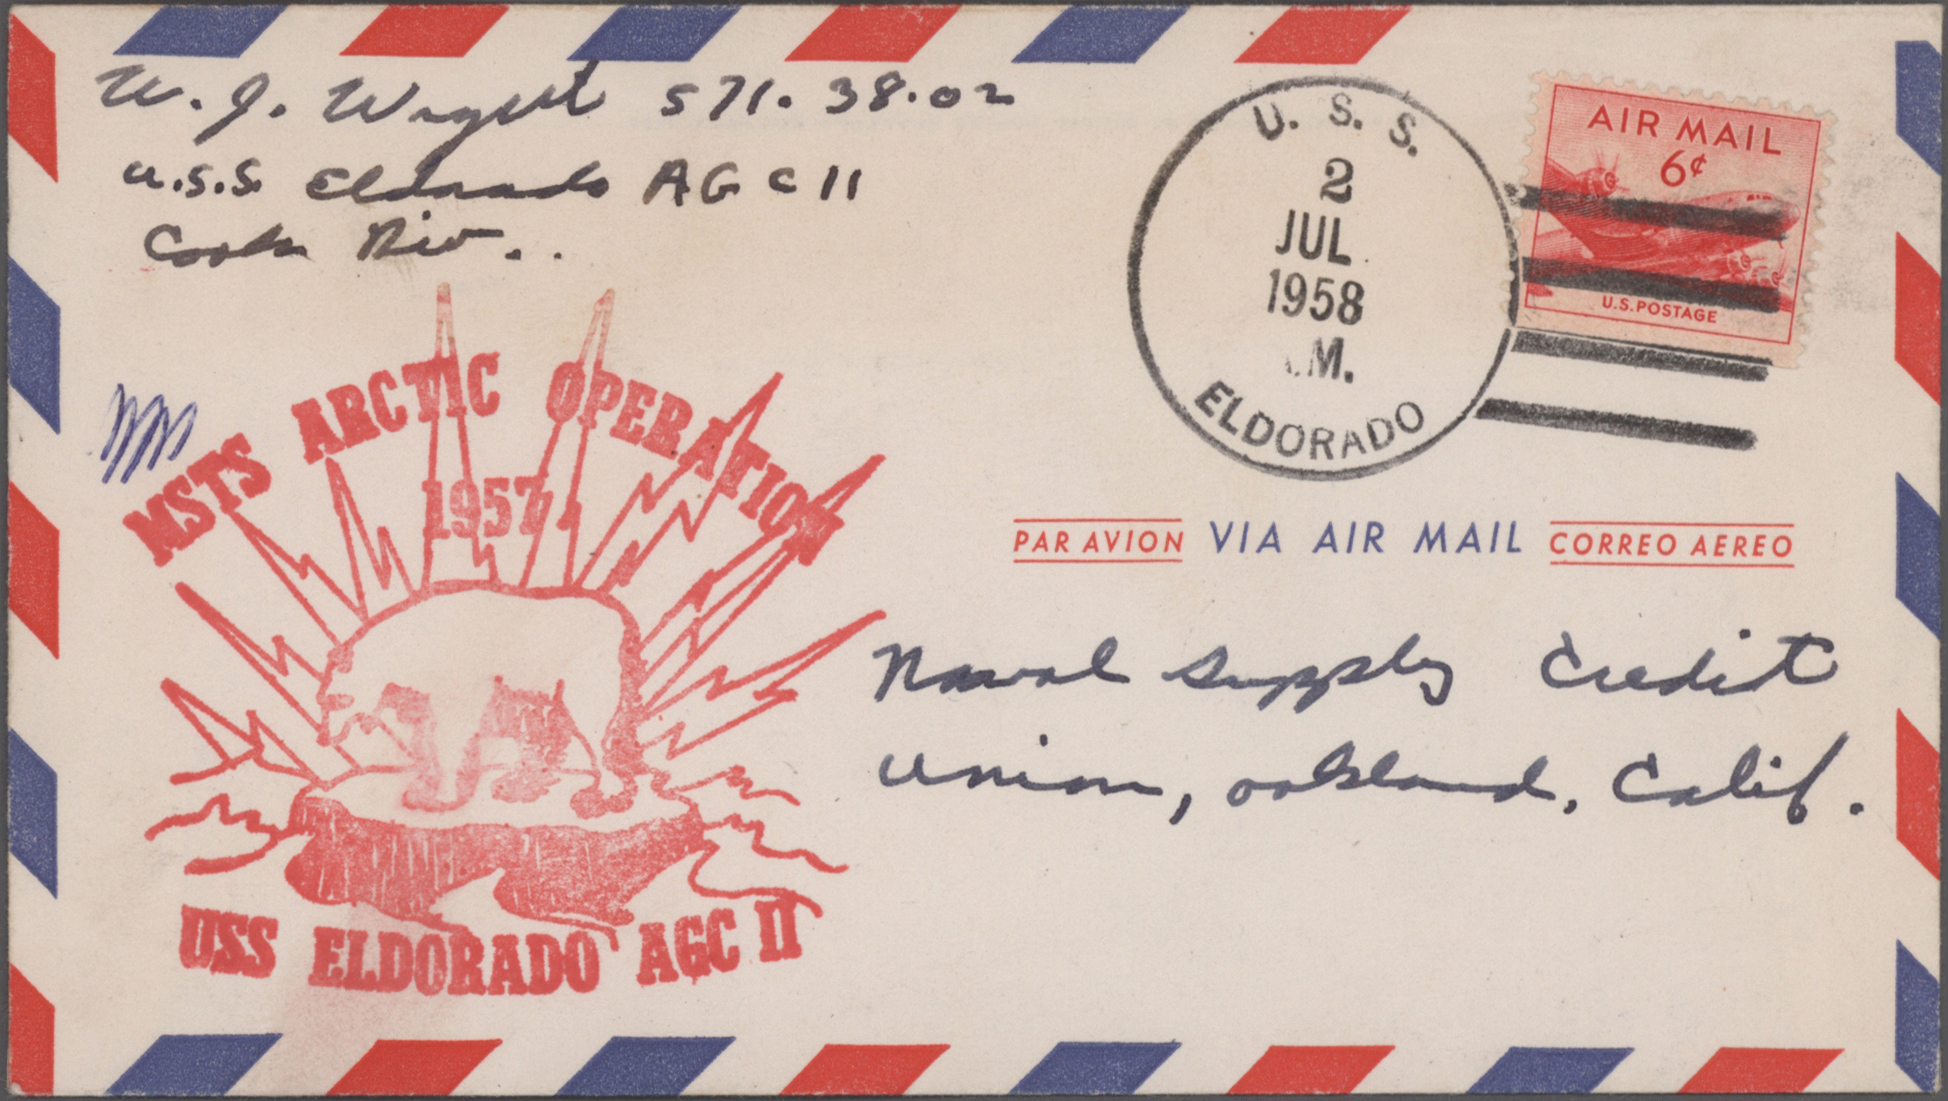 W. J. Wright 571.38.02
U.S.S. Eldorado AGC 11
Cook's Div..
U. S. S.
2
JUL
1958
.M.
ELDORADO
AIR MAIL
6¢
U.S. POSTAGE
MSTS ARCTIC OPERATION
1957
PAR AVION VIA AIR MAIL CORREO AEREO
Naval Supply Credit
Union, Oakland, Calif.
USS ELDORADO AGC II